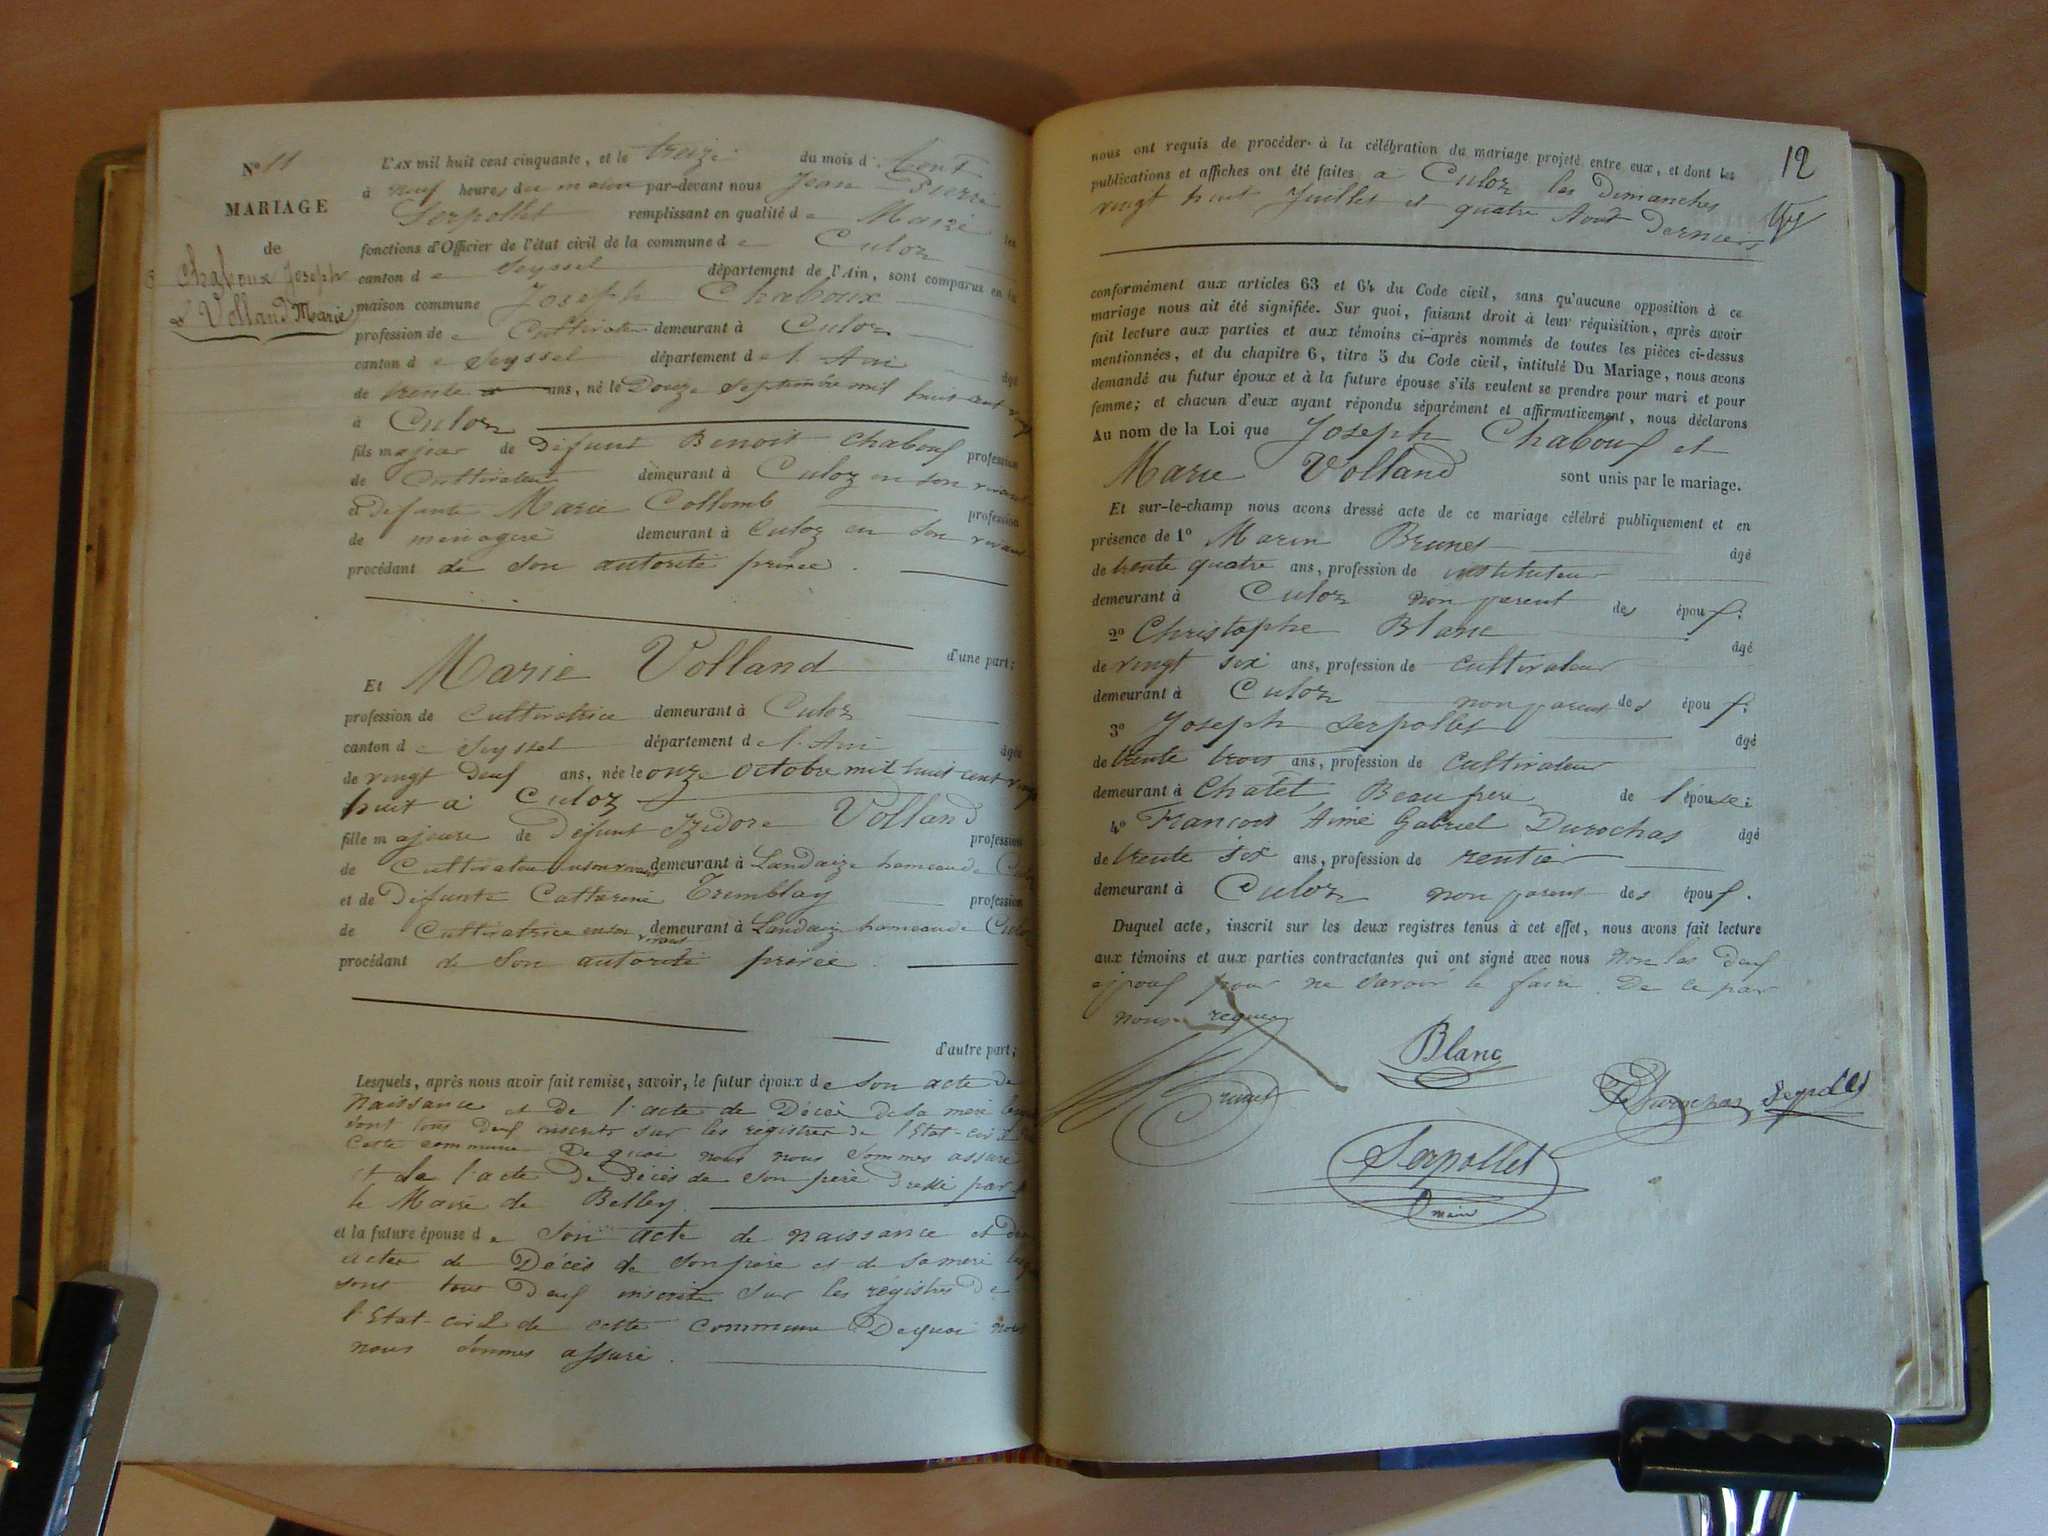 N° 11
MARIAGE
de
Chaboux Joseph
et Volland Marie
L'AN mil huit cent cinquante, et le treize du mois d' Aout
à neuf heures du matin par-devant nous Jean Pierre
Serpollet remplissant en qualité de Maire les
fonctions d'Officier de l'état civil de la commune de Culoz
canton de Seyssel département de l'Ain, sont comparus en la
maison commune Joseph Chaboux
profession de Cultivateur demeurant à Culoz
canton de Seyssel département de l'Ain âgé
de trente ans, né le Douze Septembre mil huit cent vingt
à Culoz
fils majeur de Défunt Benoit Chaboux profession
de Cultivateur demeurant à Culoz en son vivant
et défunte Marie Collomb profession
de ménagère demeurant à Culoz en son vivant
procédant de son autorité privée.
d'une part;
Et Marie Volland
profession de Cultivatrice demeurant à Culoz
canton de Seyssel département de l'Ain âgée
de vingt deux ans, née le onze octobre mil huit cent vingt
huit à Culoz
fille majeure de Défunt Izidore Volland profession
de Cultivateur en son vivant demeurant à Landaize hameau de Culoz
et de Défunte Catherine Tremblay profession
de Cultivatrice en son vivant demeurant à Landaize hameau de Culoz
procédant de Son autorité privée.
d'autre part;
Lesquels, après nous avoir fait remise, savoir, le futur époux de Son acte de
Naissance et de l'acte de Décès de sa mère
sont tous deux inscrits sur les registres de l'Etat-civil
Cette commune De quoi nous nous sommes assuré
et de l'acte De Décès de son père dressé par
le Maire de Belley.
et la future épouse de Son acte de naissance et des
actes de Décès de son père et de sa mère
sont tous deux inscrits sur les régistres De
l'Etat-civil de cette commune De quoi nous
nous sommes assuré.
12
nous ont requis de procéder à la célébration du mariage projeté entre eux, et dont les
publications et affiches ont été faites à Culoz les Dimanches
vingt huit Juillet et quatre Aout Derniers
conformément aux articles 63 et 64 du Code civil, sans qu'aucune opposition à ce
mariage nous ait été signifiée. Sur quoi, faisant droit à leur réquisition, après avoir
fait lecture aux parties et aux témoins ci-après nommés de toutes les pièces ci-dessus
mentionnées, et du chapitre 6, titre 5 du Code civil, intitulé Du Mariage, nous avons
demandé au futur époux et à la future épouse s'ils veulent se prendre pour mari et pour
femme; et chacun d'eux ayant répondu séparément et affirmativement, nous déclarons
Au nom de la Loi que Joseph Chaboux et
Marie Volland sont unis par le mariage.
Et sur-le-champ nous avons dressé acte de ce mariage célébré publiquement et en
présence de 1° Marin Brunet âgé
de trente quatre ans, profession de instituteur
demeurant à Culoz non parent des époux:
2° Christophe Blanc âgé
de vingt six ans, profession de cultivateur
demeurant à Culoz non parent des époux:
3° Joseph Serpollet âgé
de trente trois ans, profession de Cultivateur
demeurant à Chatel Beau frère de l'épouse:
4° François Aimé Gabriel Durochas âgé
de trente six ans, profession de rentier
demeurant à Culoz non parent des époux.
Duquel acte, inscrit sur les deux registres tenus à cet effet, nous avons fait lecture
aux témoins et aux parties contractantes qui ont signé avec nous Non les deux
époux pour ne Savoir le faire. De ce par
nous requis
Brunet
Blanc
Durochas
Serpollet
Serpollet
maire